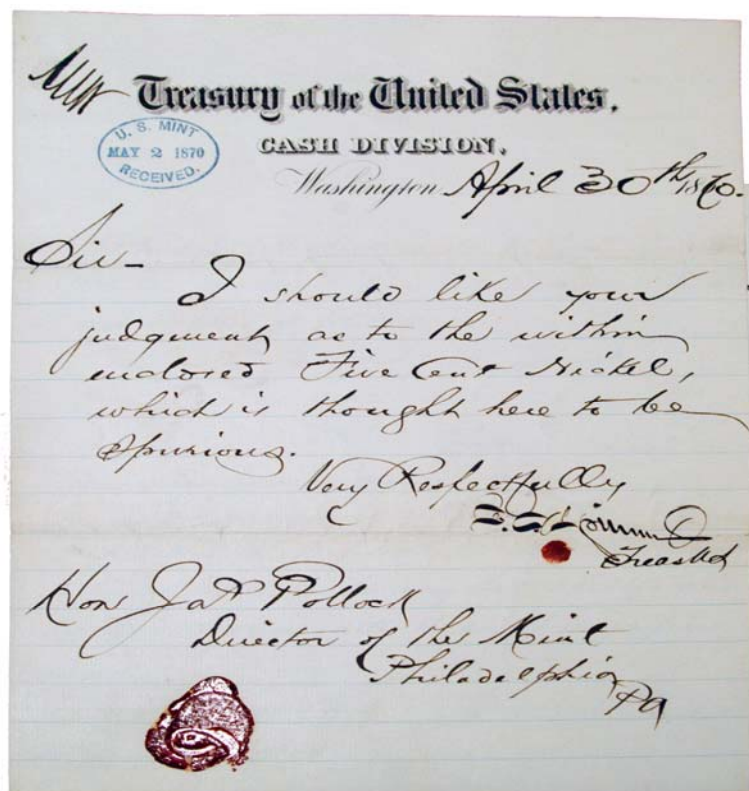 Treasury of the United States.
U. S. MINT
MAY 2 1870
RECEIVED.
CASH DIVISION,
Washington April 30th 1870.
Sir-
I should like your
judgment as to the within
enclosed Five Cent Nickel,
which is thought here to be
spurious.
Very Respectfully
Treas U S
Hon Jas Pollock
Director of the Mint
Philadelphia
Pa